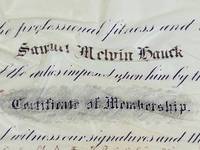 he professional fitness and
Samuel Melvin Hauck
the duties imposed upon him by th
Certificate of Membership.
witness our signatures and th